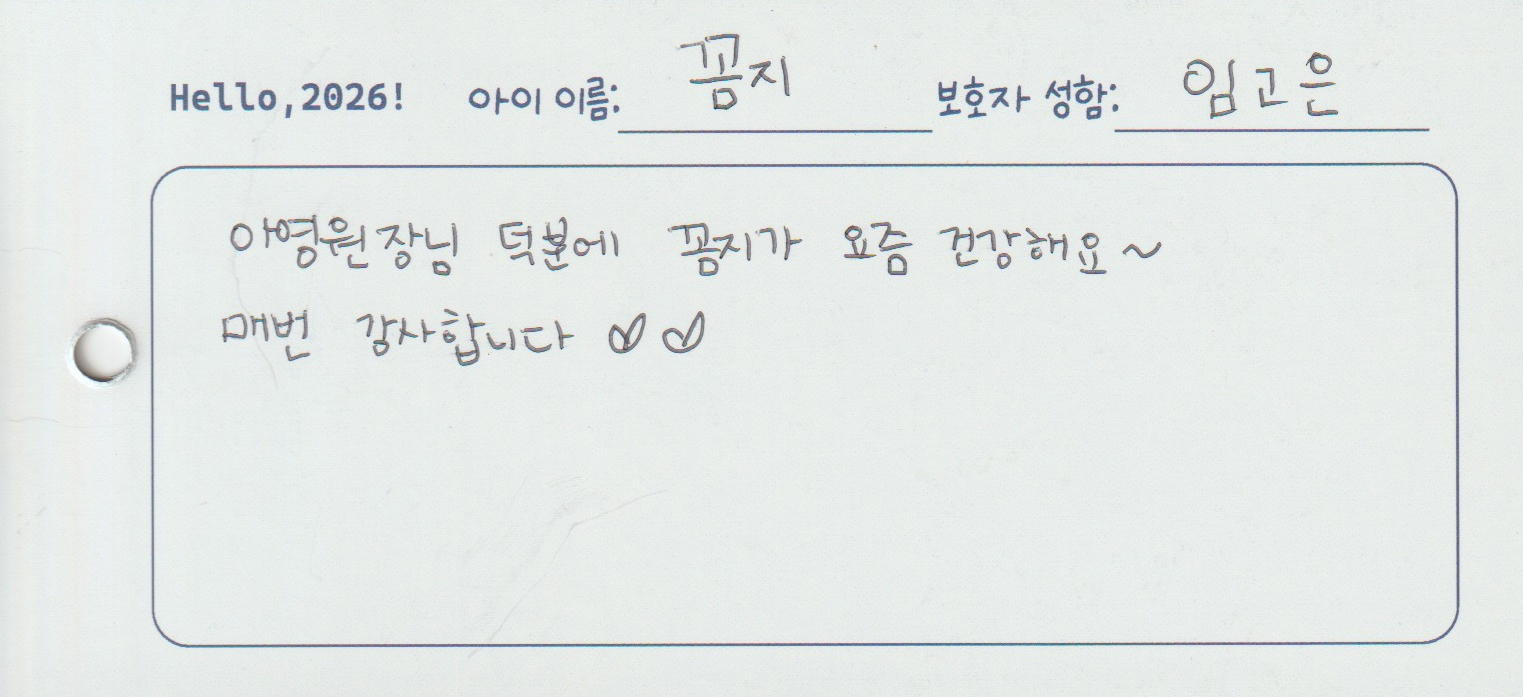 Hello,2026! 아이 이름: 꼼지 보호자 성함: 임고은
아영원장님 덕분에 꼼지가 요즘 건강해요~
매번 감사합니다 ♡♡